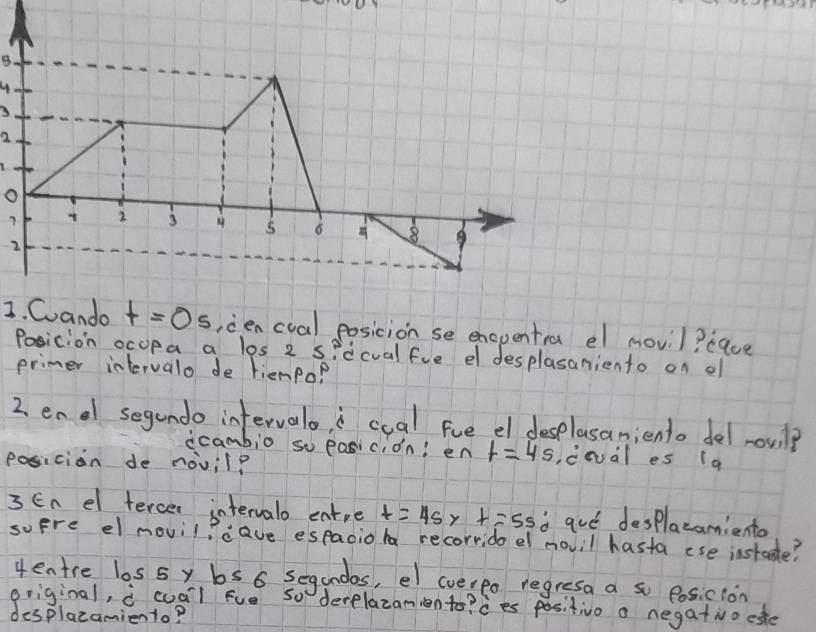 5
4
3
2
1
0
1 2 3 4 5 6 7 8 9
1
2
1. Cuando t = 0 s, ¿en cual posición se encuentra el movil? ¿que
Posición ocupa a los 2 s? ¿cual fue el desplasamiento en el
primer intervalo de tiempo?
2. en el segundo intervalo, ¿ cual fue el desplasamiento del movil?
¿cambio su posición? en t = 4s, ¿cuál es la
posición de móvil?
3 En el tercer intervalo entre t = 4s y t = 5s ¿ qué desplazamiento
sufre el movil? ¿Que espacio ha recorrido el movil hasta ese instante?
4 entre los 5 y los 6 segundos, el cuerpo regresa a su posición
original, ¿ cuál fue su desplazamiento? ¿ es positivo o negativo este
desplazamiento?